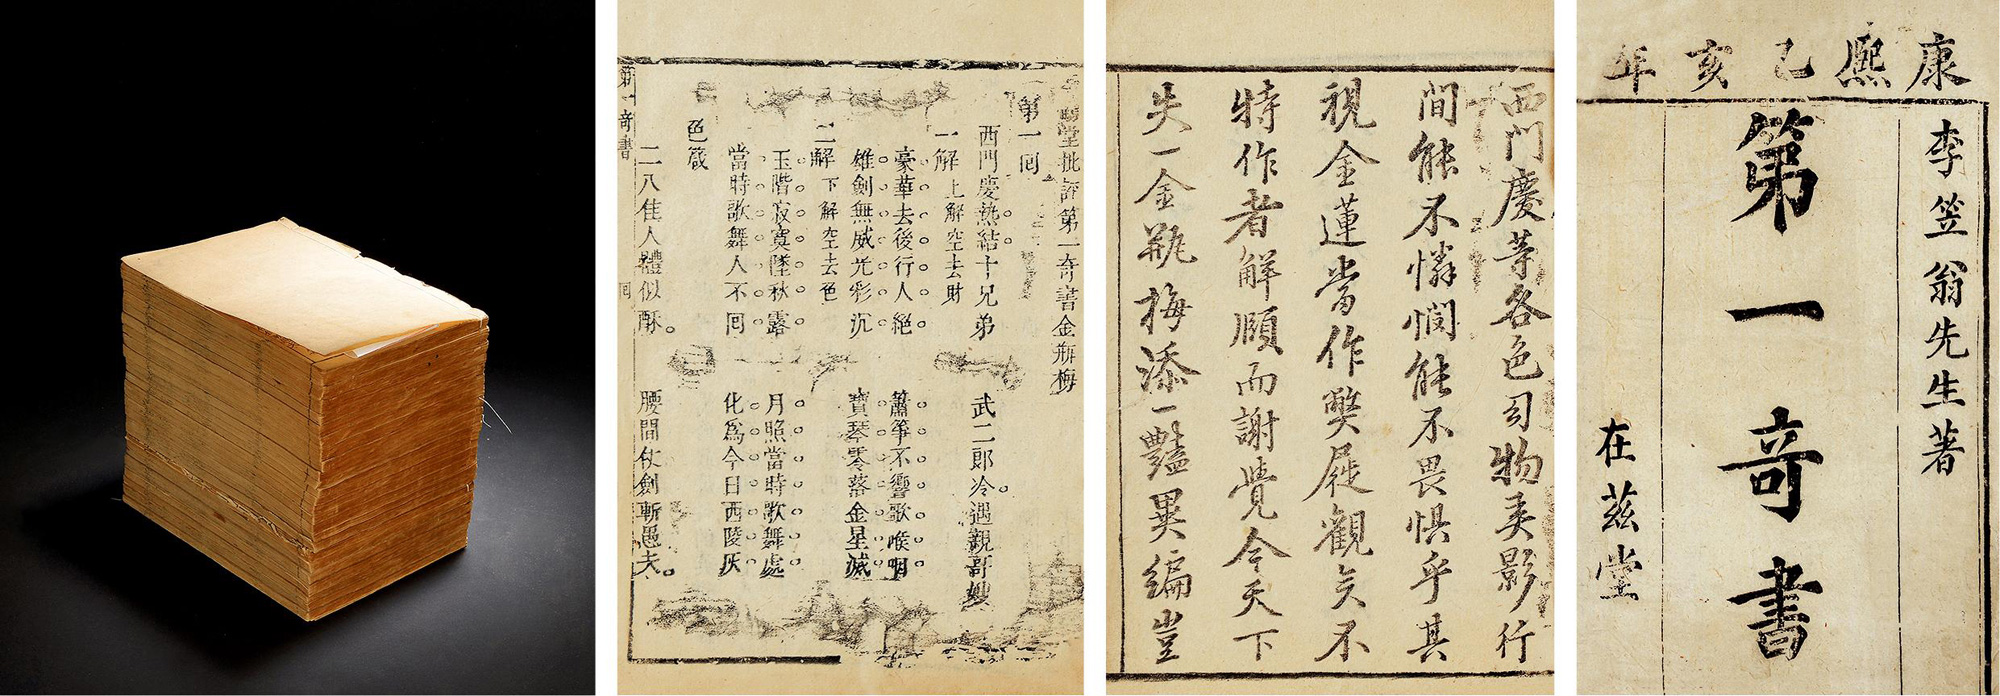 鶴堂批評第一奇書金瓶梅
第一囘
西門慶熱結十兄弟 武二郎冷遇親哥嫂
一解 上解空去財
豪華去後行人絕 簫箏不響歌喉咽
雄劍無威光彩沉 寶琴零落金星滅
二解 下解空去色
玉階寂寞墜秋露 月照當時歌舞處
當時歌舞人不囘 化為今日西陵灰
色箴
二八佳人體似酥 腰間仗劍斬愚夫
第一奇書 囘
西門慶等各色幻物弄影行
間能不憐憫能不畏懼乎其
視金蓮當作獘屣觀矣不
特作者解頤而謝覺今天下
失一金瓶梅添一豔異編豈
康熙乙亥年
李笠翁先生著
第一奇書
在茲堂